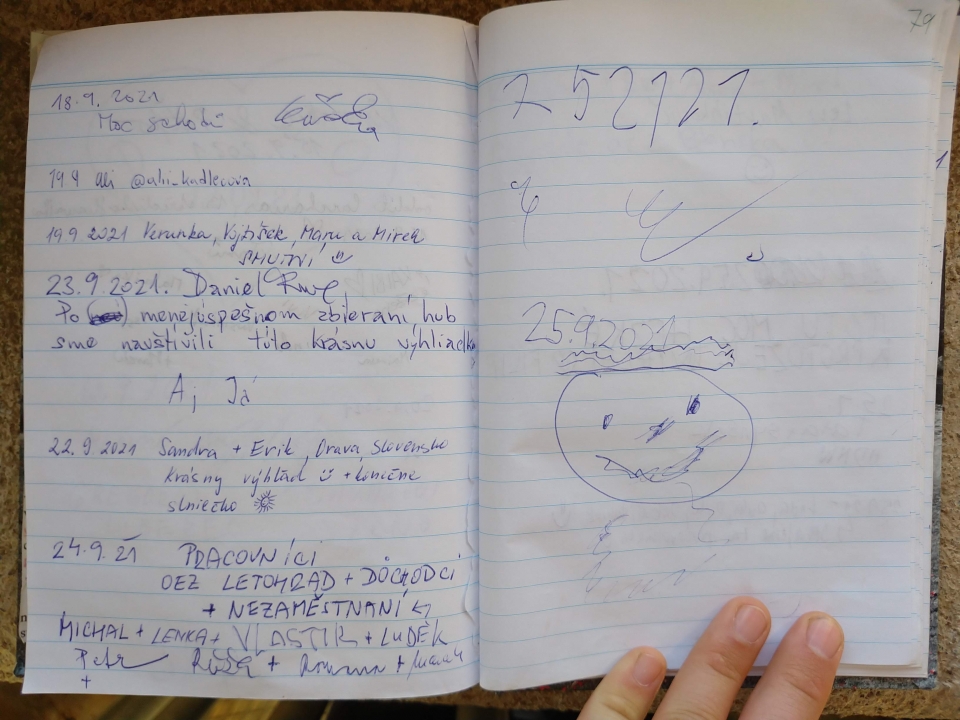 18.9. 2021
Moc schodů
19 9 Ali @ali_kadlecova
19 9 2021 Verunka, Vojtíšek, Maru a Mirek
SMUTNÍ
23.9.2021. Daniel
Po menejúspešnom zbieraní húb
sme navštívili túto krásnu výhliadku
Aj Já
22.9.2021 Sandra + Erik, Orava, Slovensko
krásny výhľad + konečne
slniečko
24.9.21 PRACOVNÍCI
OEZ LETOHRAD + DŮCHODCI
+ NEZAMĚSTNANÍ
MICHAL + LENKA + VLASTIK + LUDĚK
Petr Růža + Romana +
+
79
7 52121.
25.9.2021